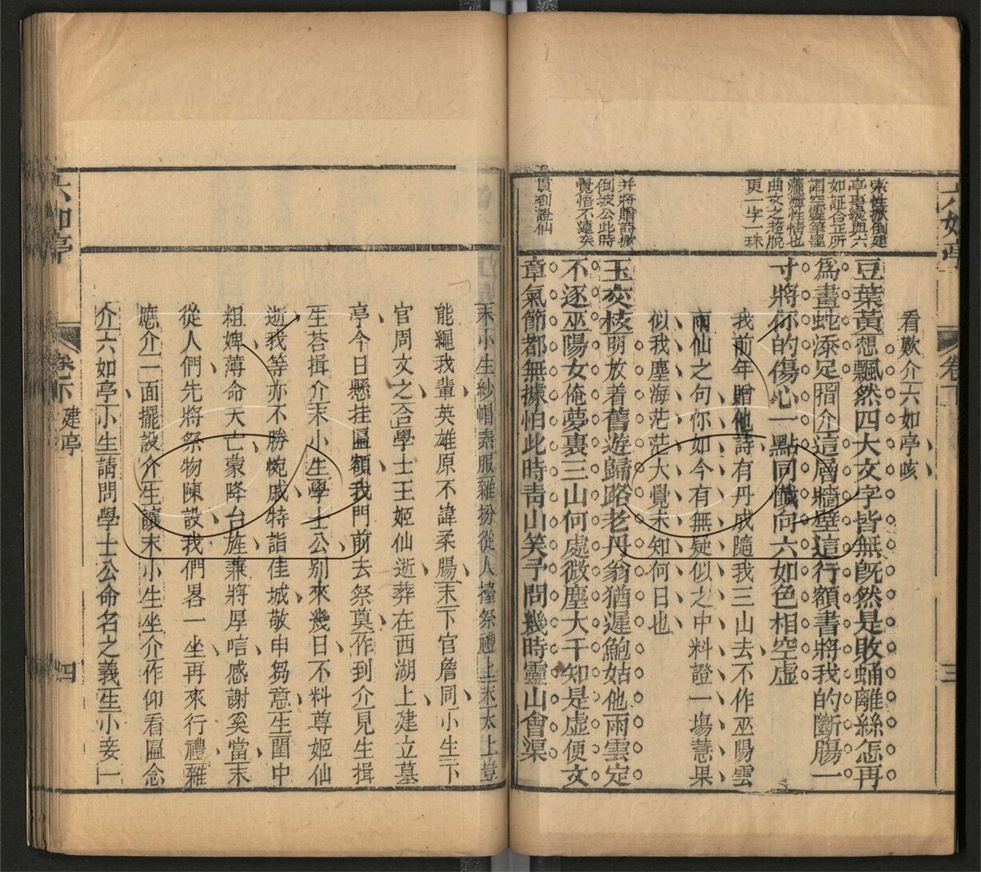 六如亭
卷下
三
宋性掀倒建
亭事纔與六
如証合正所
謂空靈筆墨
曲文之超脫
更一字一珠
并將贈詩掀
倒坡公此時
覺悟不遠矣
貫到證仙
看歎介六如亭咳
豆葉黃想飄然四大文字皆無旣然是敗蛹離絲怎再
爲畫蛇添足㨪介這層牆壁這行額書將我的斷腸一
寸將你的傷心一點同懺向六如色相空虛
我前年贈他詩有丹成隨我三山去不作巫陽雲
雨仙之句你如今有無疑似之中料證一塲慧果
似我塵海茫茫大覺未知何日也
玉交枝明放着舊遊歸路老丹翁猶遲鮑姑他雨雲定
不逐巫陽女俺夢裏三山何處微塵大千知是虛便文
章氣節都無據怕此時靑山笑予問幾時靈山會渠
末小生紗帽素服雜扮從人擡祭禮上末太上豈
能繩我輩英雄原不諱柔腸末下官詹同小生下
官周文之合學士王姬仙逝葬在西湖上建立墓
亭今日懸挂匾額我門前去祭奠作到介見生揖
生荅揖介末小生學士公別來幾日不料尊姬仙
逝我等亦不勝惋戚特詣佳城敬申芻意生閨中
粗婢薄命天亡蒙降台旌兼將厚唁感謝奚當末
從人們先將祭物陳設我們畧一坐再來行禮雜
應介二面擺設介生讓末小生坐介作仰看匾念
介六如亭小生請問學士公命名之義生小妾一
六如亭
卷下
建亭
四